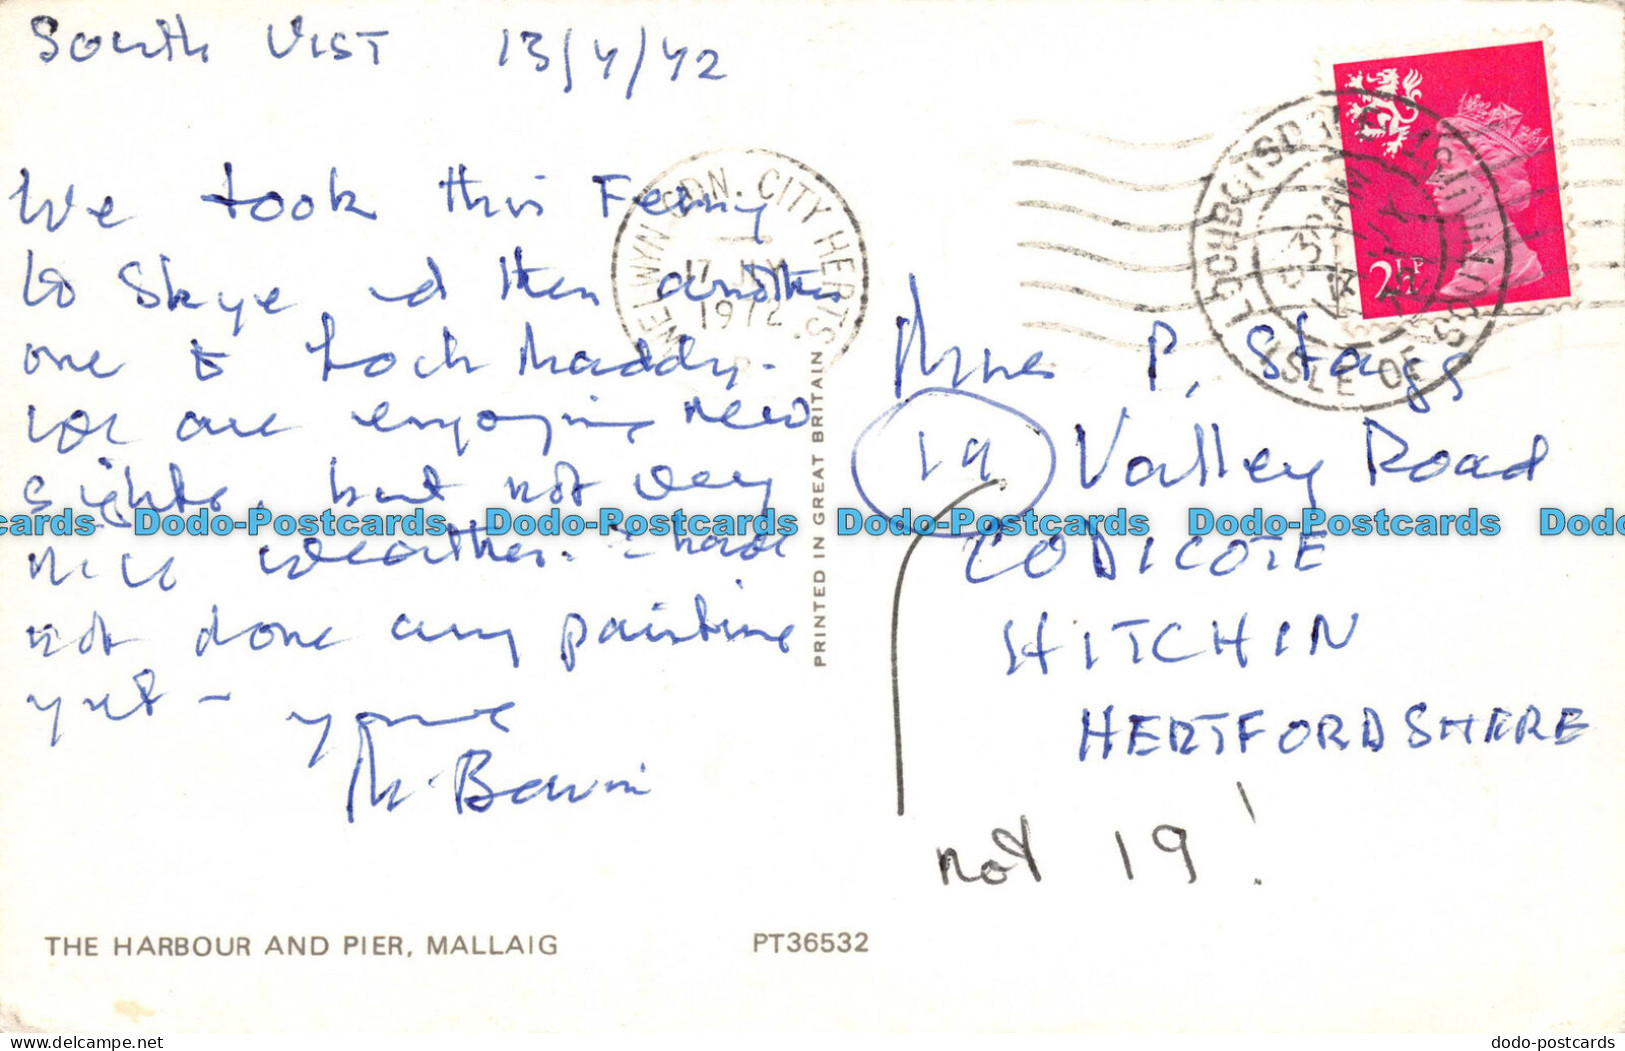 South UIST 13/4/42
We took this Ferry
to Skye and then another
one to Lochmaddy.
We are enjoying new
sights, but not very
nice weather. I have
not done any painting
yet – yours
M. Bawin
WELWYN GDN. CITY HERTS.
17 MY
1972
LOCHBOISDALE
ISLE OF SOUTH UIST
2½P
P. Staggs
19 Valley Road
CODICOTE
HITCHIN
HERTFORDSHIRE
not 19!
PRINTED IN GREAT BRITAIN
THE HARBOUR AND PIER, MALLAIG PT36532
Dodo-Postcards Dodo-Postcards Dodo-Postcards Dodo-Postcards
hippostcard.com dodo-postcards